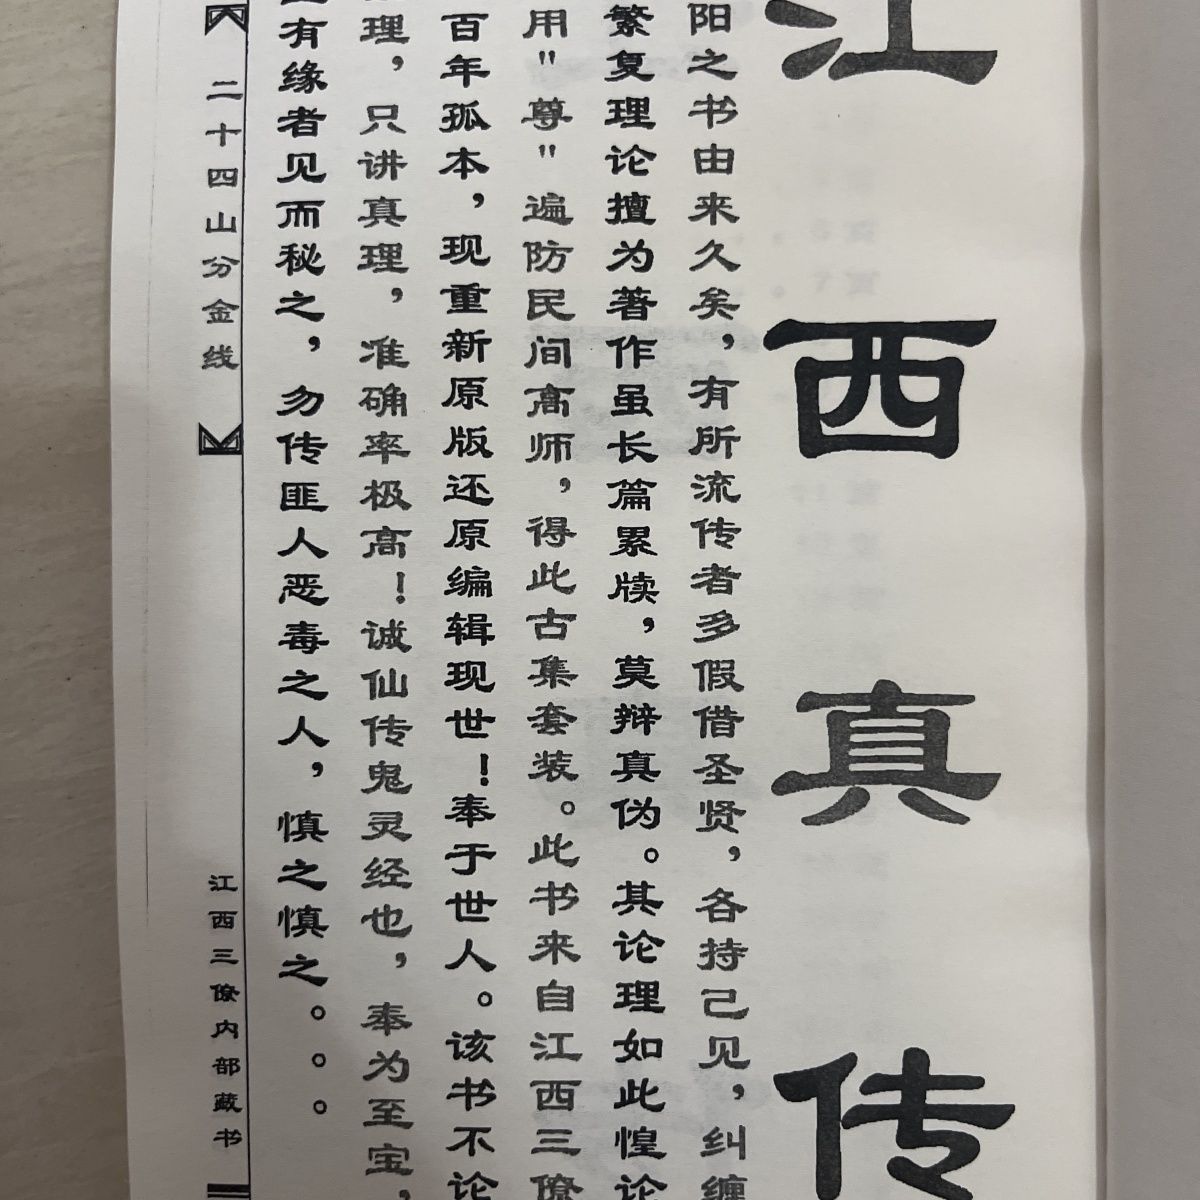 江西真传
阳之书由来久矣，有所流传者多假借圣贤，各持己见，纠缠
繁复理论擅为著作虽长篇累牍，莫辩真伪。其论理如此惶论
用"尊"遍防民间高师，得此古集套装。此书来自江西三僚
百年孤本，现重新原版还原编辑现世！奉于世人。该书不论
理，只讲真理，准确率极高！诚仙传鬼灵经也，奉为至宝，
有缘者见而秘之，勿传匪人恶毒之人，慎之慎之。。。
二十四山分金线
江西三僚内部藏书